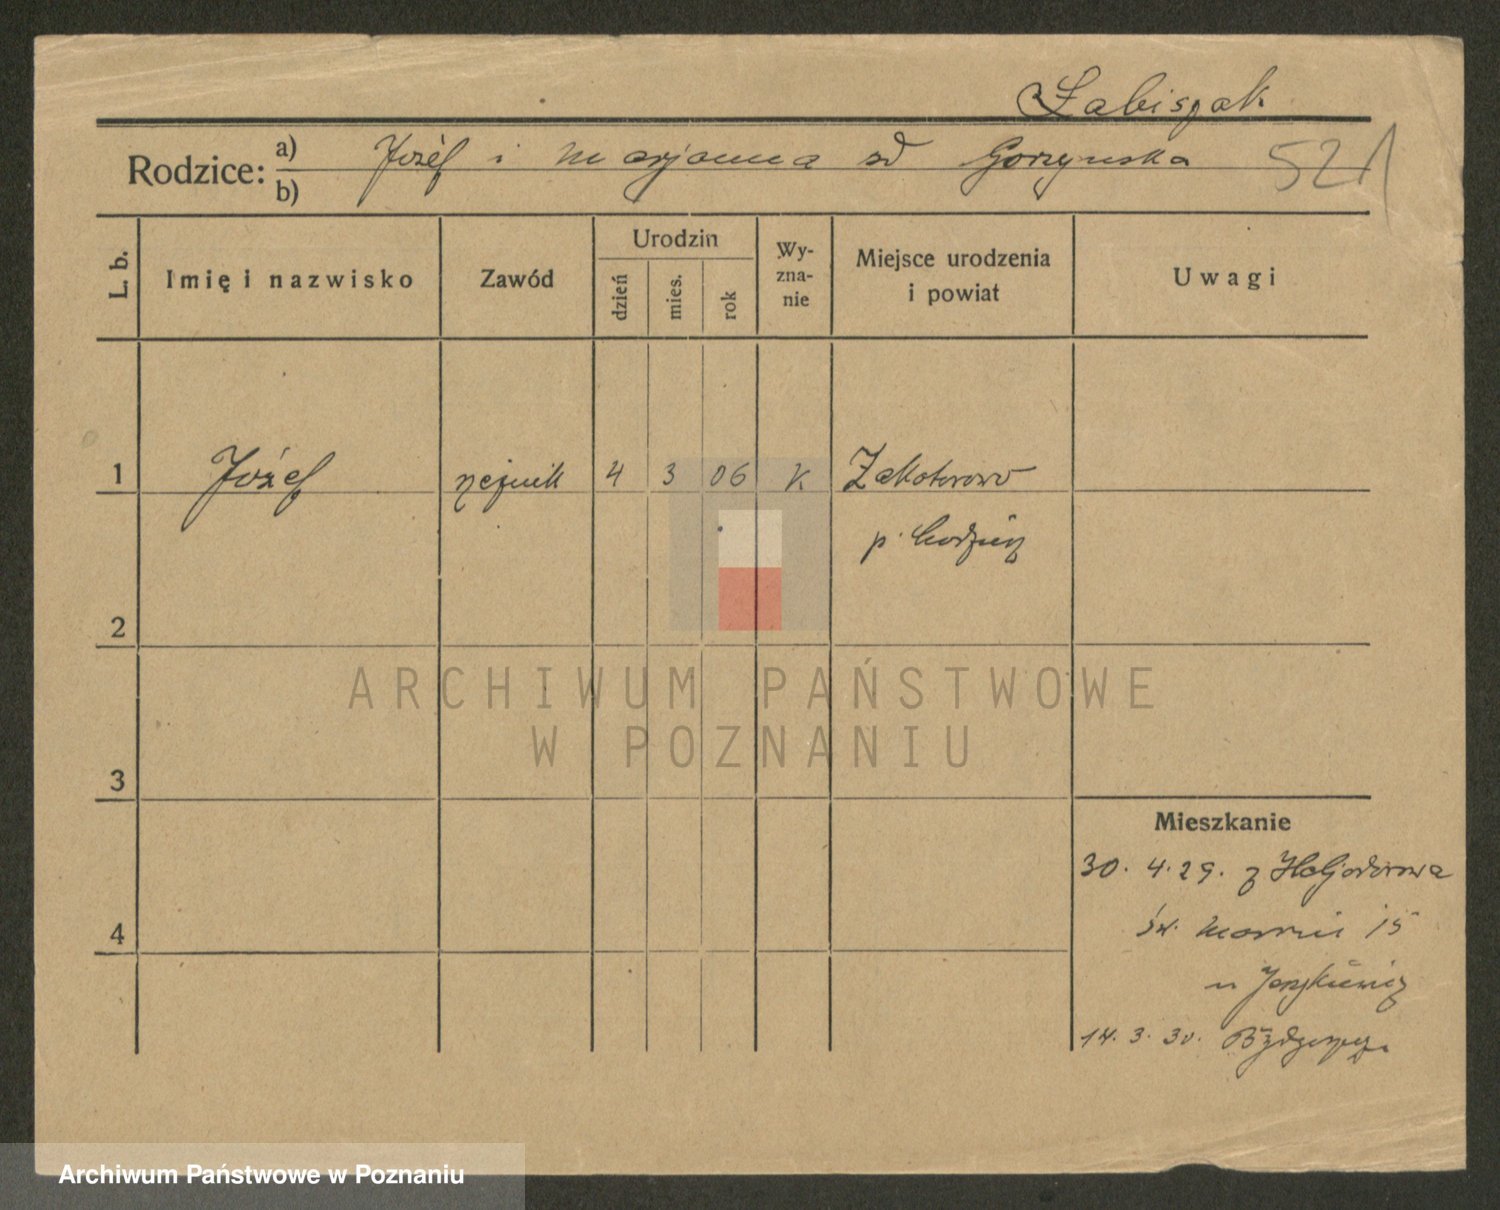 Łabiszak
Rodzice: a) Józef i Marjanna zd Gorzynska 521
b)
L. b. Imię i nazwisko Zawód Urodzin dzień mies. rok Wy-zna-nie Miejsce urodzenia i powiat Uwagi
1 Józef rzeźnik 4 3 06 K Zaktorowo
p. Chodzież
2
ARCHIWUM PAŃSTWOWE
W POZNANIU
3
Mieszkanie
30. 4. 29. z Heljodorowa
4 św. Marcin 15
u
14. 3. 30. Bydgoszcz.
Archiwum Państwowe w Poznaniu